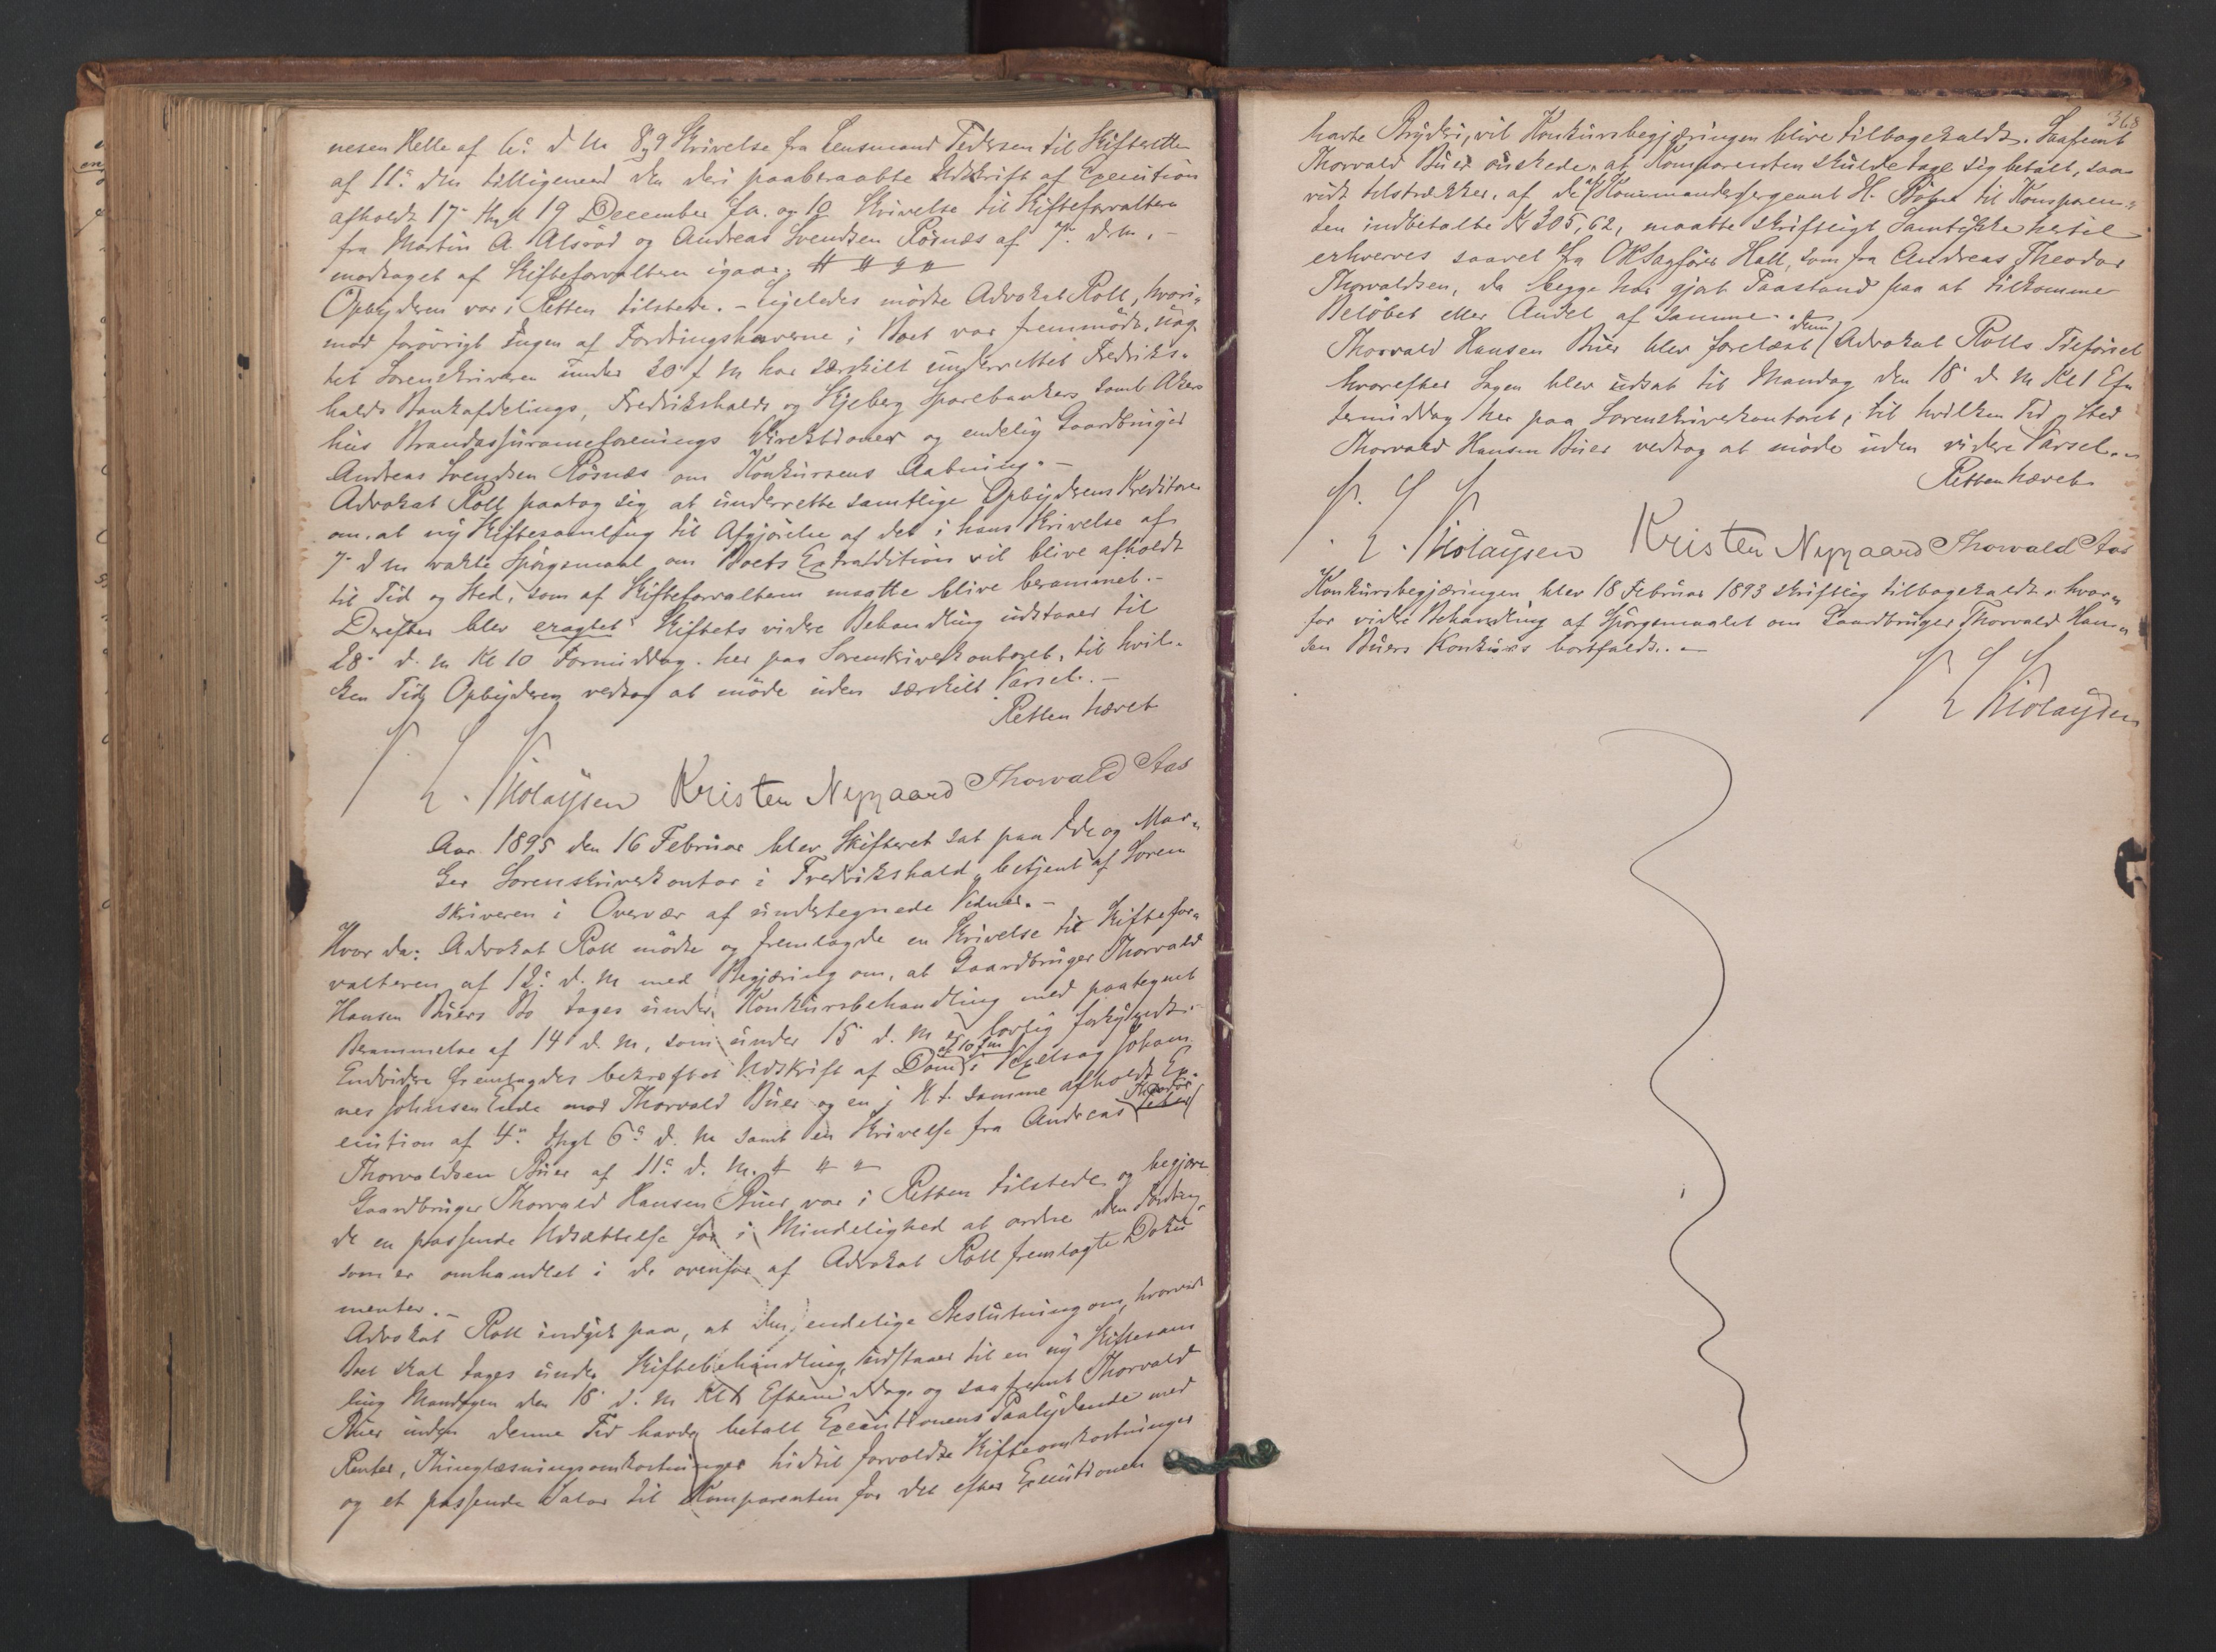 nesen Helle af 6te d M 8, 9 Skrivelse fra Lensmand Pedersen til Skifteretten
af 11te dM tilligemed den deri paaberaabte Udskrift af Execution
afholdt 17de 19 December f.A. og 10 Skrivelse til Skifteforvalteren
fra Martin A. Alsrød og Andreas Svendsen Rösnæs af 7de d.M. -
modtaget af Skifteforvalteren igaar.
Opbyderen var i Retten tilstede. - Ligeledes mödte Advokat Roll, hvori-
mod forövrigt Ingen af Fordringshaverne i Boet var fremmödt, uag-
tet Sorenskriveren under 30 f M har særskilt underrettet Fredriks-
halds Bankafdelings, Fredrikshalds og Skjeberg Sparebankers samt Akers
hus Brandassuranceforenings Direktioner og endelig Gaardbruger
Andreas Svendsen Rösnæs om Konkursens Aabning. -
Advokat Roll paatog sig at underrette samtlige Opbyderens Kreditorer
om, at ny Skiftesamling til Afgjörelse af det i hans Skrivelse af
7de d M vakte Spörgsmaal om Boets Extradition vil blive afholdt
til Tid og Sted, som af Skifteforvalteren maatte blive berammet. -
Derefter blev eragtet: Skiftets videre Behandling udstaaer til
28de d. M Kl 10 Formiddag her paa Sorenskriverkontoret, til hvil-
ken Tid Opbyderen vedtog at möde uden særskilt Varsel. -
Retten hævet
Nolaysen Kristen Nygaard Thorvald Aas
Aar 1895 den 16 Februar blev Skifteret sat paa Ide og Mar-
ker Sorenskriverkontor i Fredrikshald, betjent af Soren
skriveren i Overvær af undertegnede Vidner. -
Hvor da: Advokat Roll mödte og fremlagde en Skrivelse til Skiftefor-
valteren af 12te d. M med Begjæring om, at Gaardbruger Thorvald
Hansen Buers Bo tages under Konkursbehandling med paategnet
Berammelse af 14 d. M, som under 15 d. M er lovlig forkyndt. -
Endvidere fremlagdes bekræftet Udskrift af Dom af 10 f M i Vexelsag Johan
nes Johnsen Ende mod Thorvald Buer og en i H t. samme afholdt Ex-
ecution af 4de 6te d. M samt en Skrivelse fra Andreas Theodor
Thorvaldsen Buer af 11te d. M.
Gaardbruger Thorvald Hansen Buer var i Retten tilstede og begjære
de en passende Udsættelse for i Mindelighed at ordne den Fordring
som er omhandlet i de ovenfor af Advokat Roll fremlagte Doku
menter. -
Advokat Roll indgik paa, at den endelige Beslutning om, hvorvidt
Boet skal tages under Skiftebehandling, udstaaer til en ny Skiftesam
ling Mandagen den 18 d. M Kl 1 Eftermiddag og saafremt Thorvald
Buer inden denne Tid havde betalt Executionens Paalydende med
Renter, Thinglæsningsomkostninger hidtil forvoldte Skifteomkostninger
og et passende Salær til Komparenten for det efter Executionen
368
havte Bryderi, vil Konkursbegjæringen blive tilbagekaldt. Saafremt
Thorvald Buer önskede, at Komparenten skulde tage sig betalt, saa-
vidt tilstrækker, af de af Kommandersergeant H. til Komparen-
ten indbetalte Kr 305,62, maatte skriftligt Samtykke hertil
erhverves saavel fra OKSagförer Hall, som fra Andreas Theodor
Thorvaldsen, da begge har gjort Paastand paa at tilkomme
Belöbet eller Andel af samme. -
Thorvald Hansen Buer blev forelæst denne Advokat Rolls Tilförsel
hvorefter Sagen blev udsat til Mandag den 18 d. M Kl 1 Ef-
termiddag her paa Sorenskriverkontoret, til hvilken Tid og Sted
Thorvald Hansen Buer vedtog at möde uden videre Varsel. -
Retten hævet
Nolaysen Kristen Nygaard Thorvald Aas
Konkursbegjæringen blev 18 Februar 1893 skriftlig tilbagekaldt, hvor-
for videre Behandling af Spörgsmaalet om Gaardbruger Thorvald Han-
sen Buers Konkurs bortfaldt. -
Nolaysen